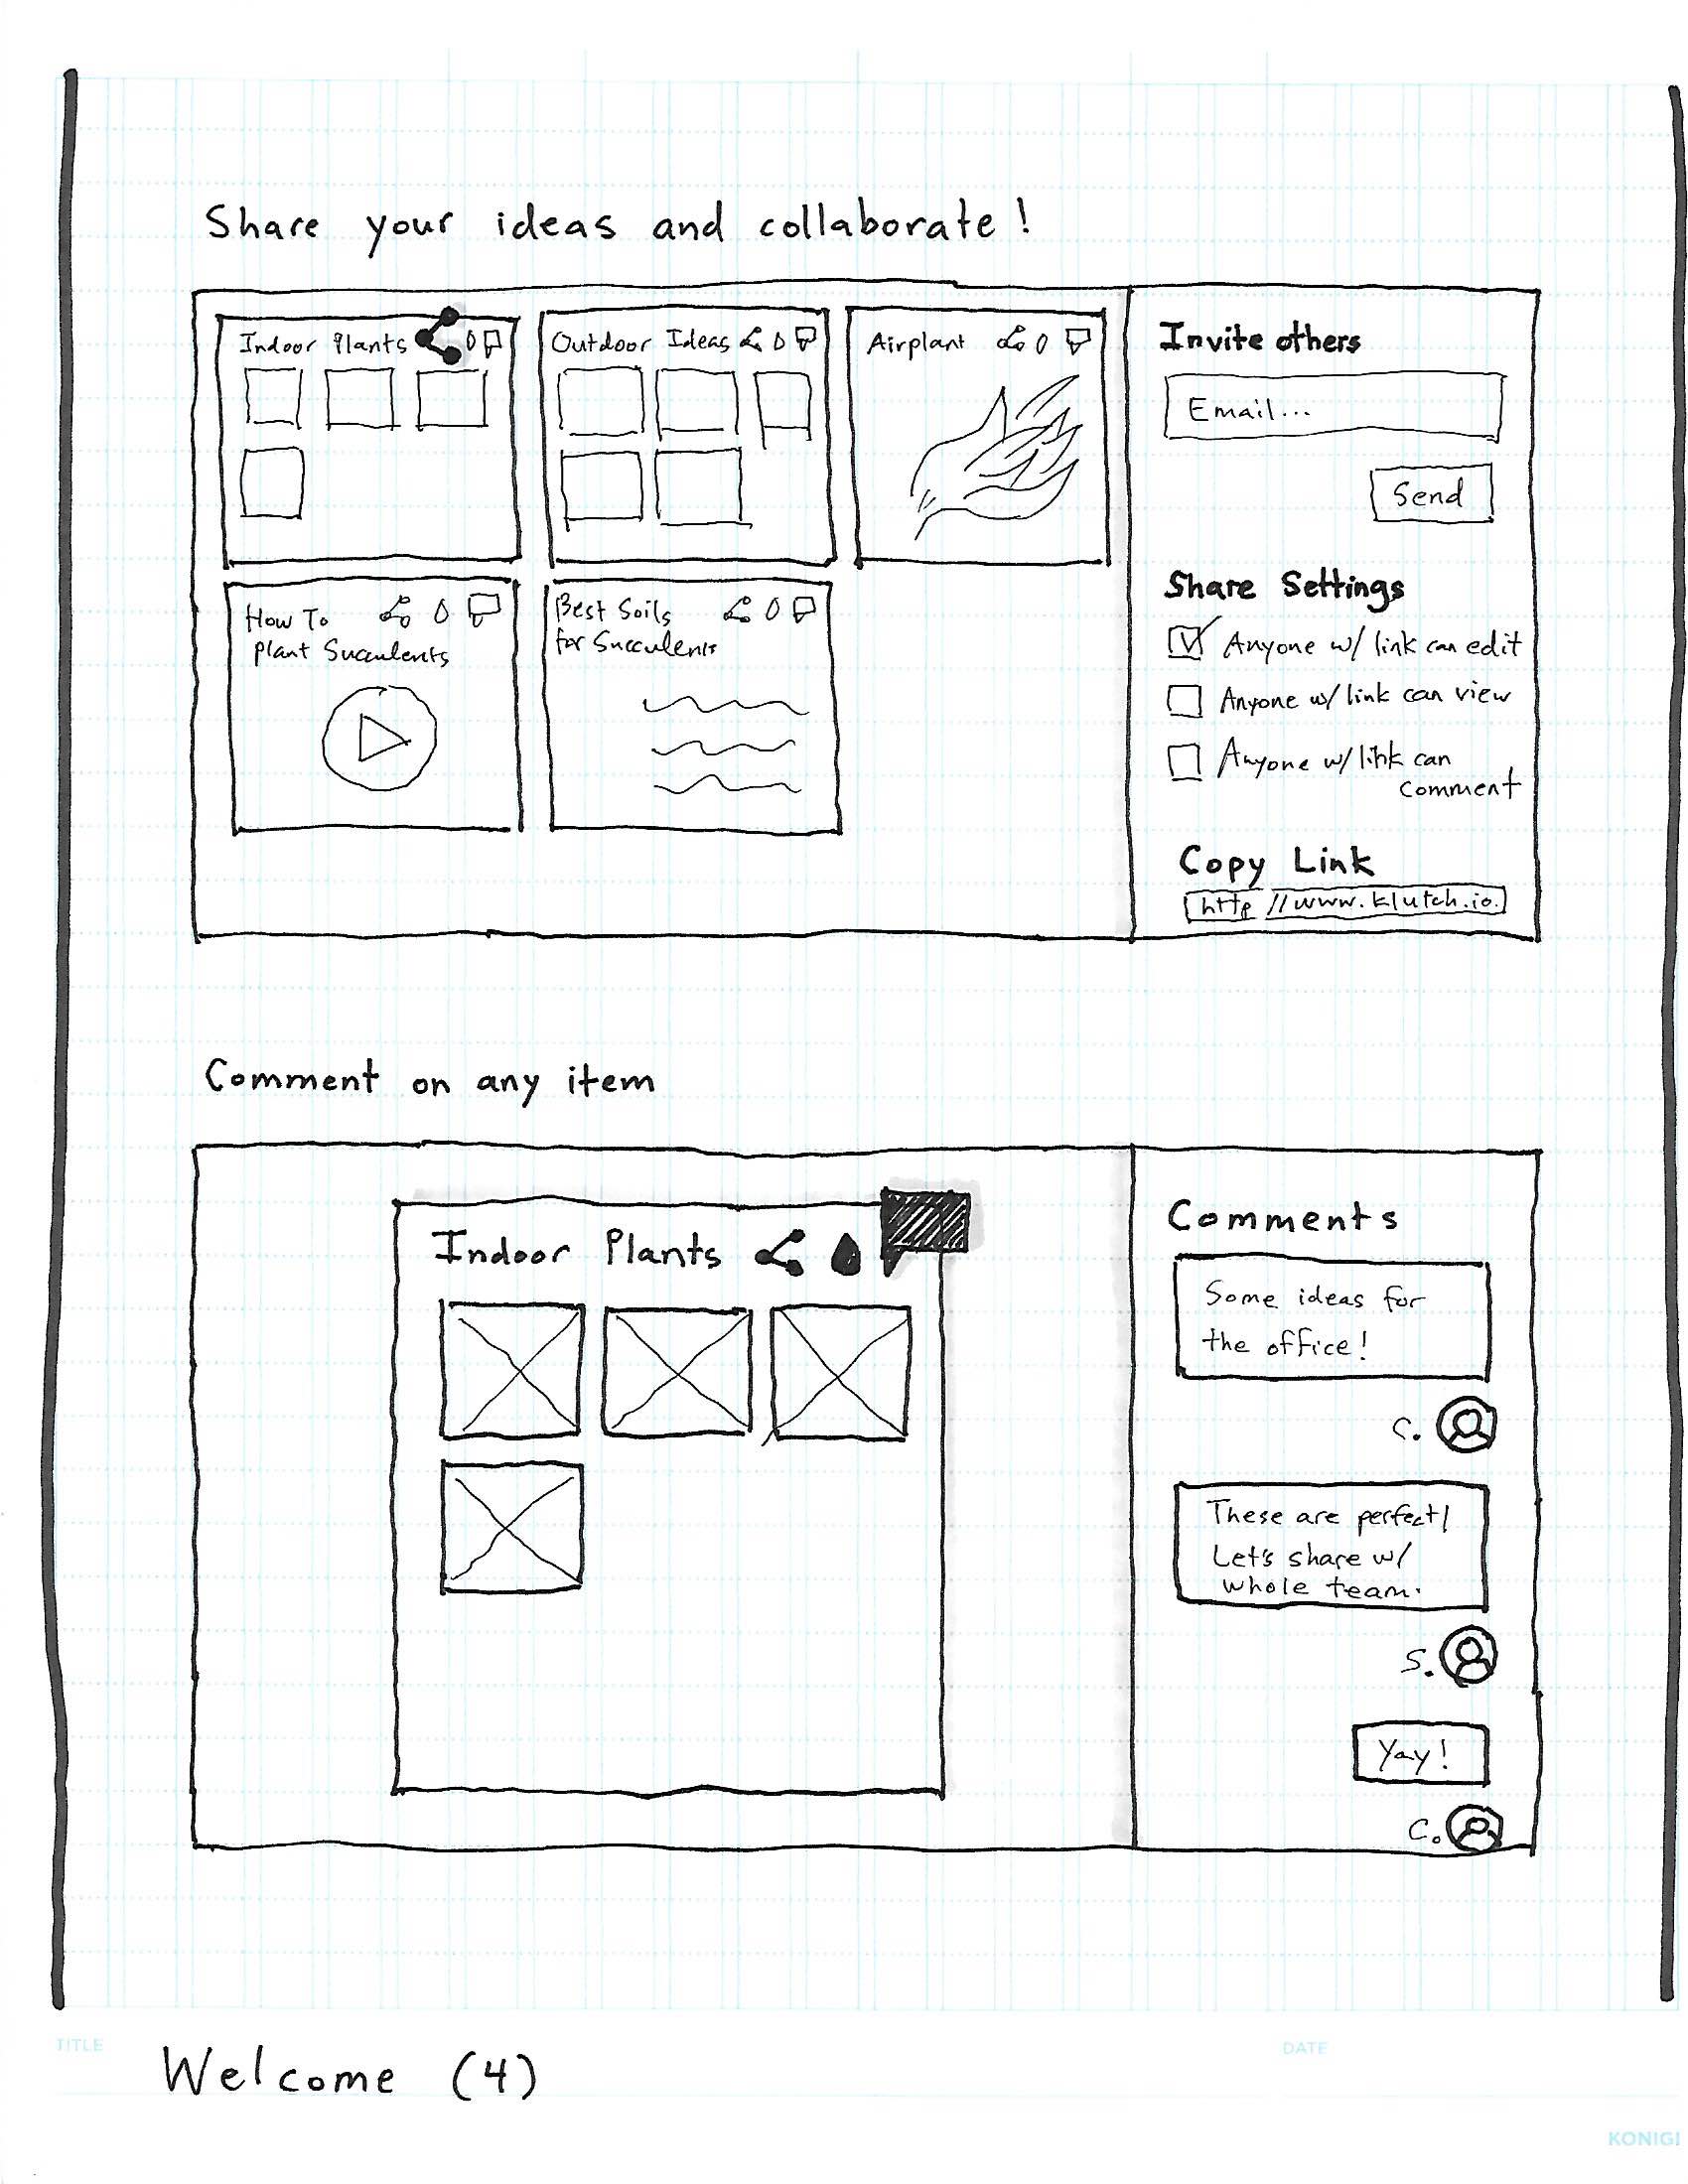 Share your ideas and collaborate!
Indoor Plants
Outdoor Ideas
Airplant
How To
Plant Succulents
Best Soils
for Succulents
Invite others
Email...
Send
Share Settings
Anyone w/ link can edit
Anyone w/ link can view
Anyone w/ link can
comment
Copy Link
http //www.klutch.io.
Comment on any item
Indoor Plants
Comments
Some ideas for
the office!
C.
These are perfect!
Let's share w/
whole team.
S.
Yay!
C.
TITLE
Welcome (4)
DATE
KONIGI